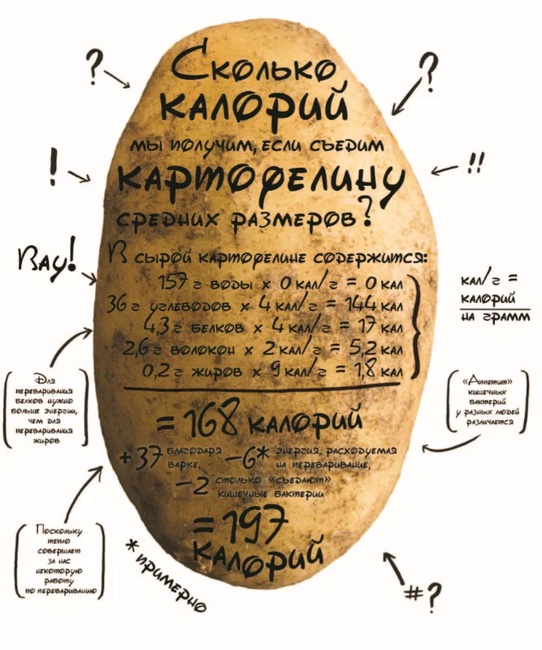 Сколько
калорий
мы получим, если съедим
картофелину
средних размеров?
?
?
!
!!
Вау!
В сырой картофелине содержится:
157 г воды x 0 кал/г = 0 кал
36 г углеводов x 4 кал/г = 144 кал
4,3 г белков x 4 кал/г = 17 кал
2,6 г волокон x 2 кал/г = 5,2 кал
0,2 г жиров x 9 кал/г = 1,8 кал
кал/г =
калорий
на грамм
Для
переваривания
белков нужно
больше энергии,
чем для
переваривания
жиров
«Аппетит»
кишечных
бактерий
у разных людей
различается
= 168 калорий
+37 благодаря варке, -6* энергия, расходуемая на переваривание,
-2 столько «съедают» кишечные бактерии
= 197
калорий
Поскольку
тепло
совершает
за нас
некоторую
работу
по перевариванию
* примерно
#?